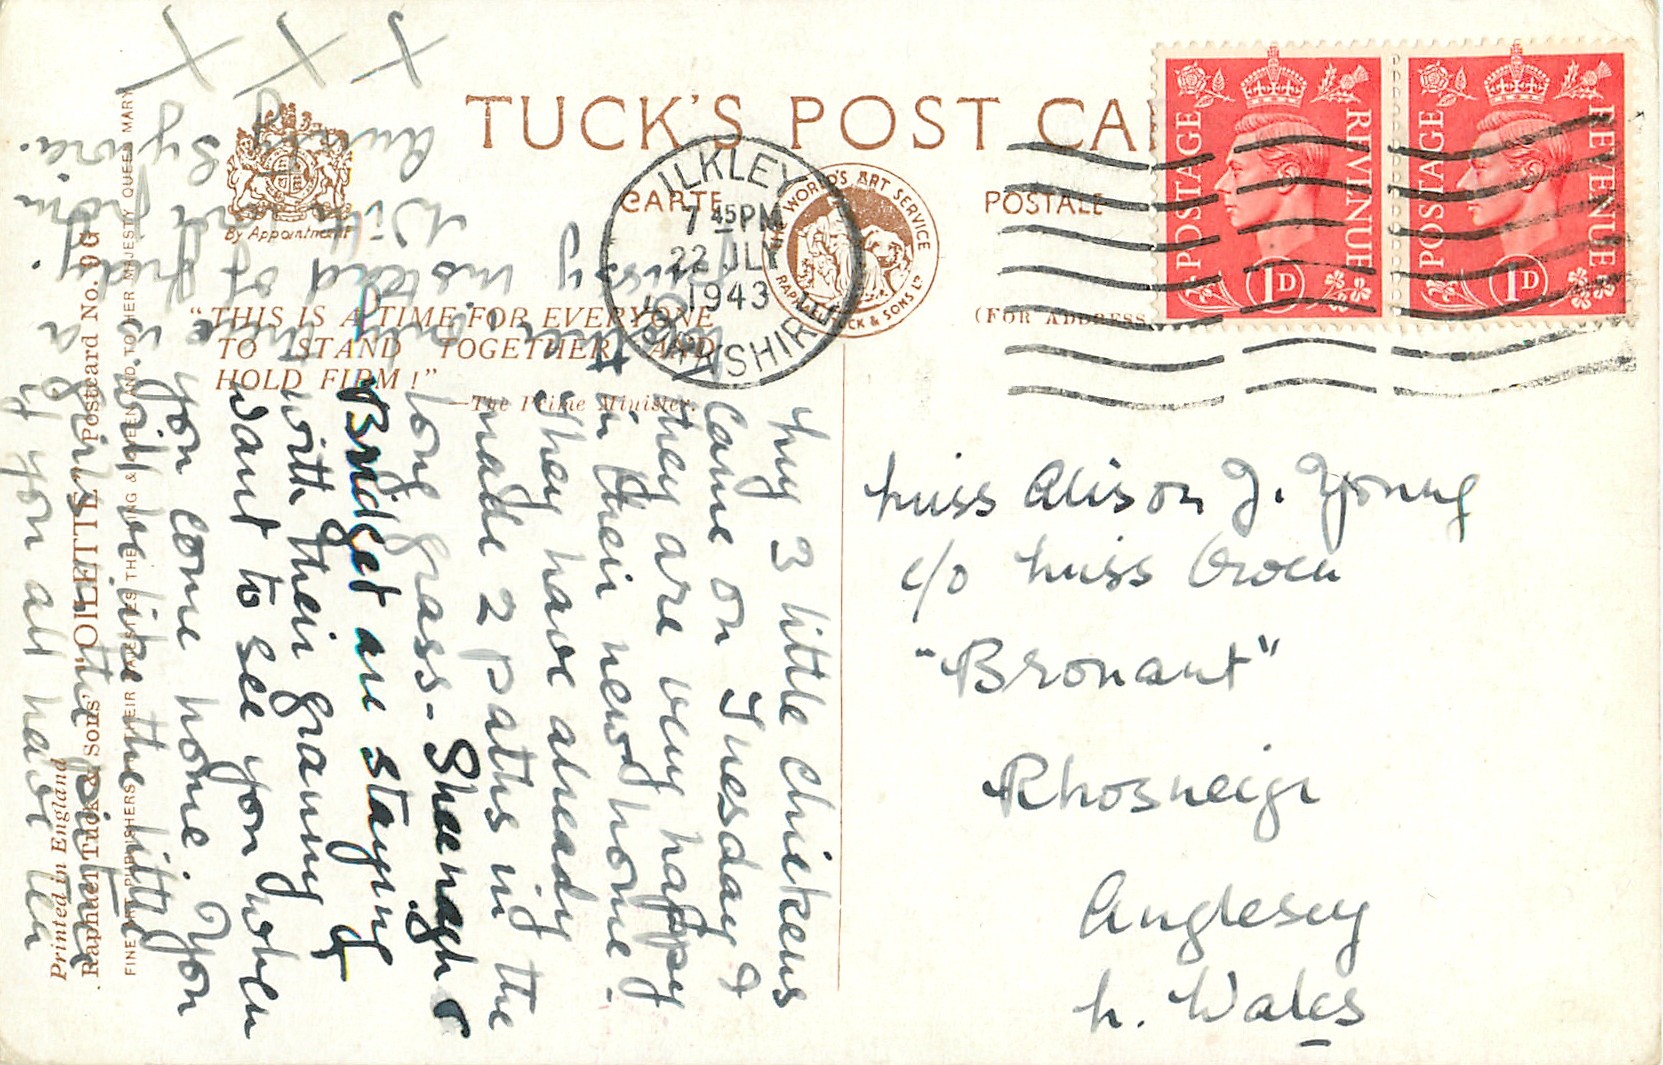 TUCK'S POST CA
By Appointment
CARTE POSTALE
(FOR ADDRESS
THE WORLD'S ART SERVICE
RAPHAEL TUCK & SONS LTD
ILKLEY
7 45PM
22 JLY
1943
YORKSHIRE
POSTAGE REVENUE
1D
POSTAGE REVENUE
1D
"THIS IS A TIME FOR EVERYONE
TO STAND TOGETHER, AND
HOLD FIRM!"
—The Prime Minister.
My 3 little chickens
came on Tuesday &
they are very happy
in their new home -
They have already
made 2 paths in the
long grass - Sheenagh &
Bridget are staying
with their granny &
want to see you when
you come home. You
will be like the little
girl in the picture
if you all have tea
pussy
instead of
With from
Aunty
X X X
Raphael Tuck & Sons' "OILETTE" Postcard No.
FINE ART PUBLISHERS TO THEIR MAJESTIES THE KING & QUEEN AND TO HER MAJESTY QUEEN MARY
Printed in England
Miss Alison J. Young
c/o Miss Owen
"Bronant"
Rhosneigr
Anglesey
N. Wales